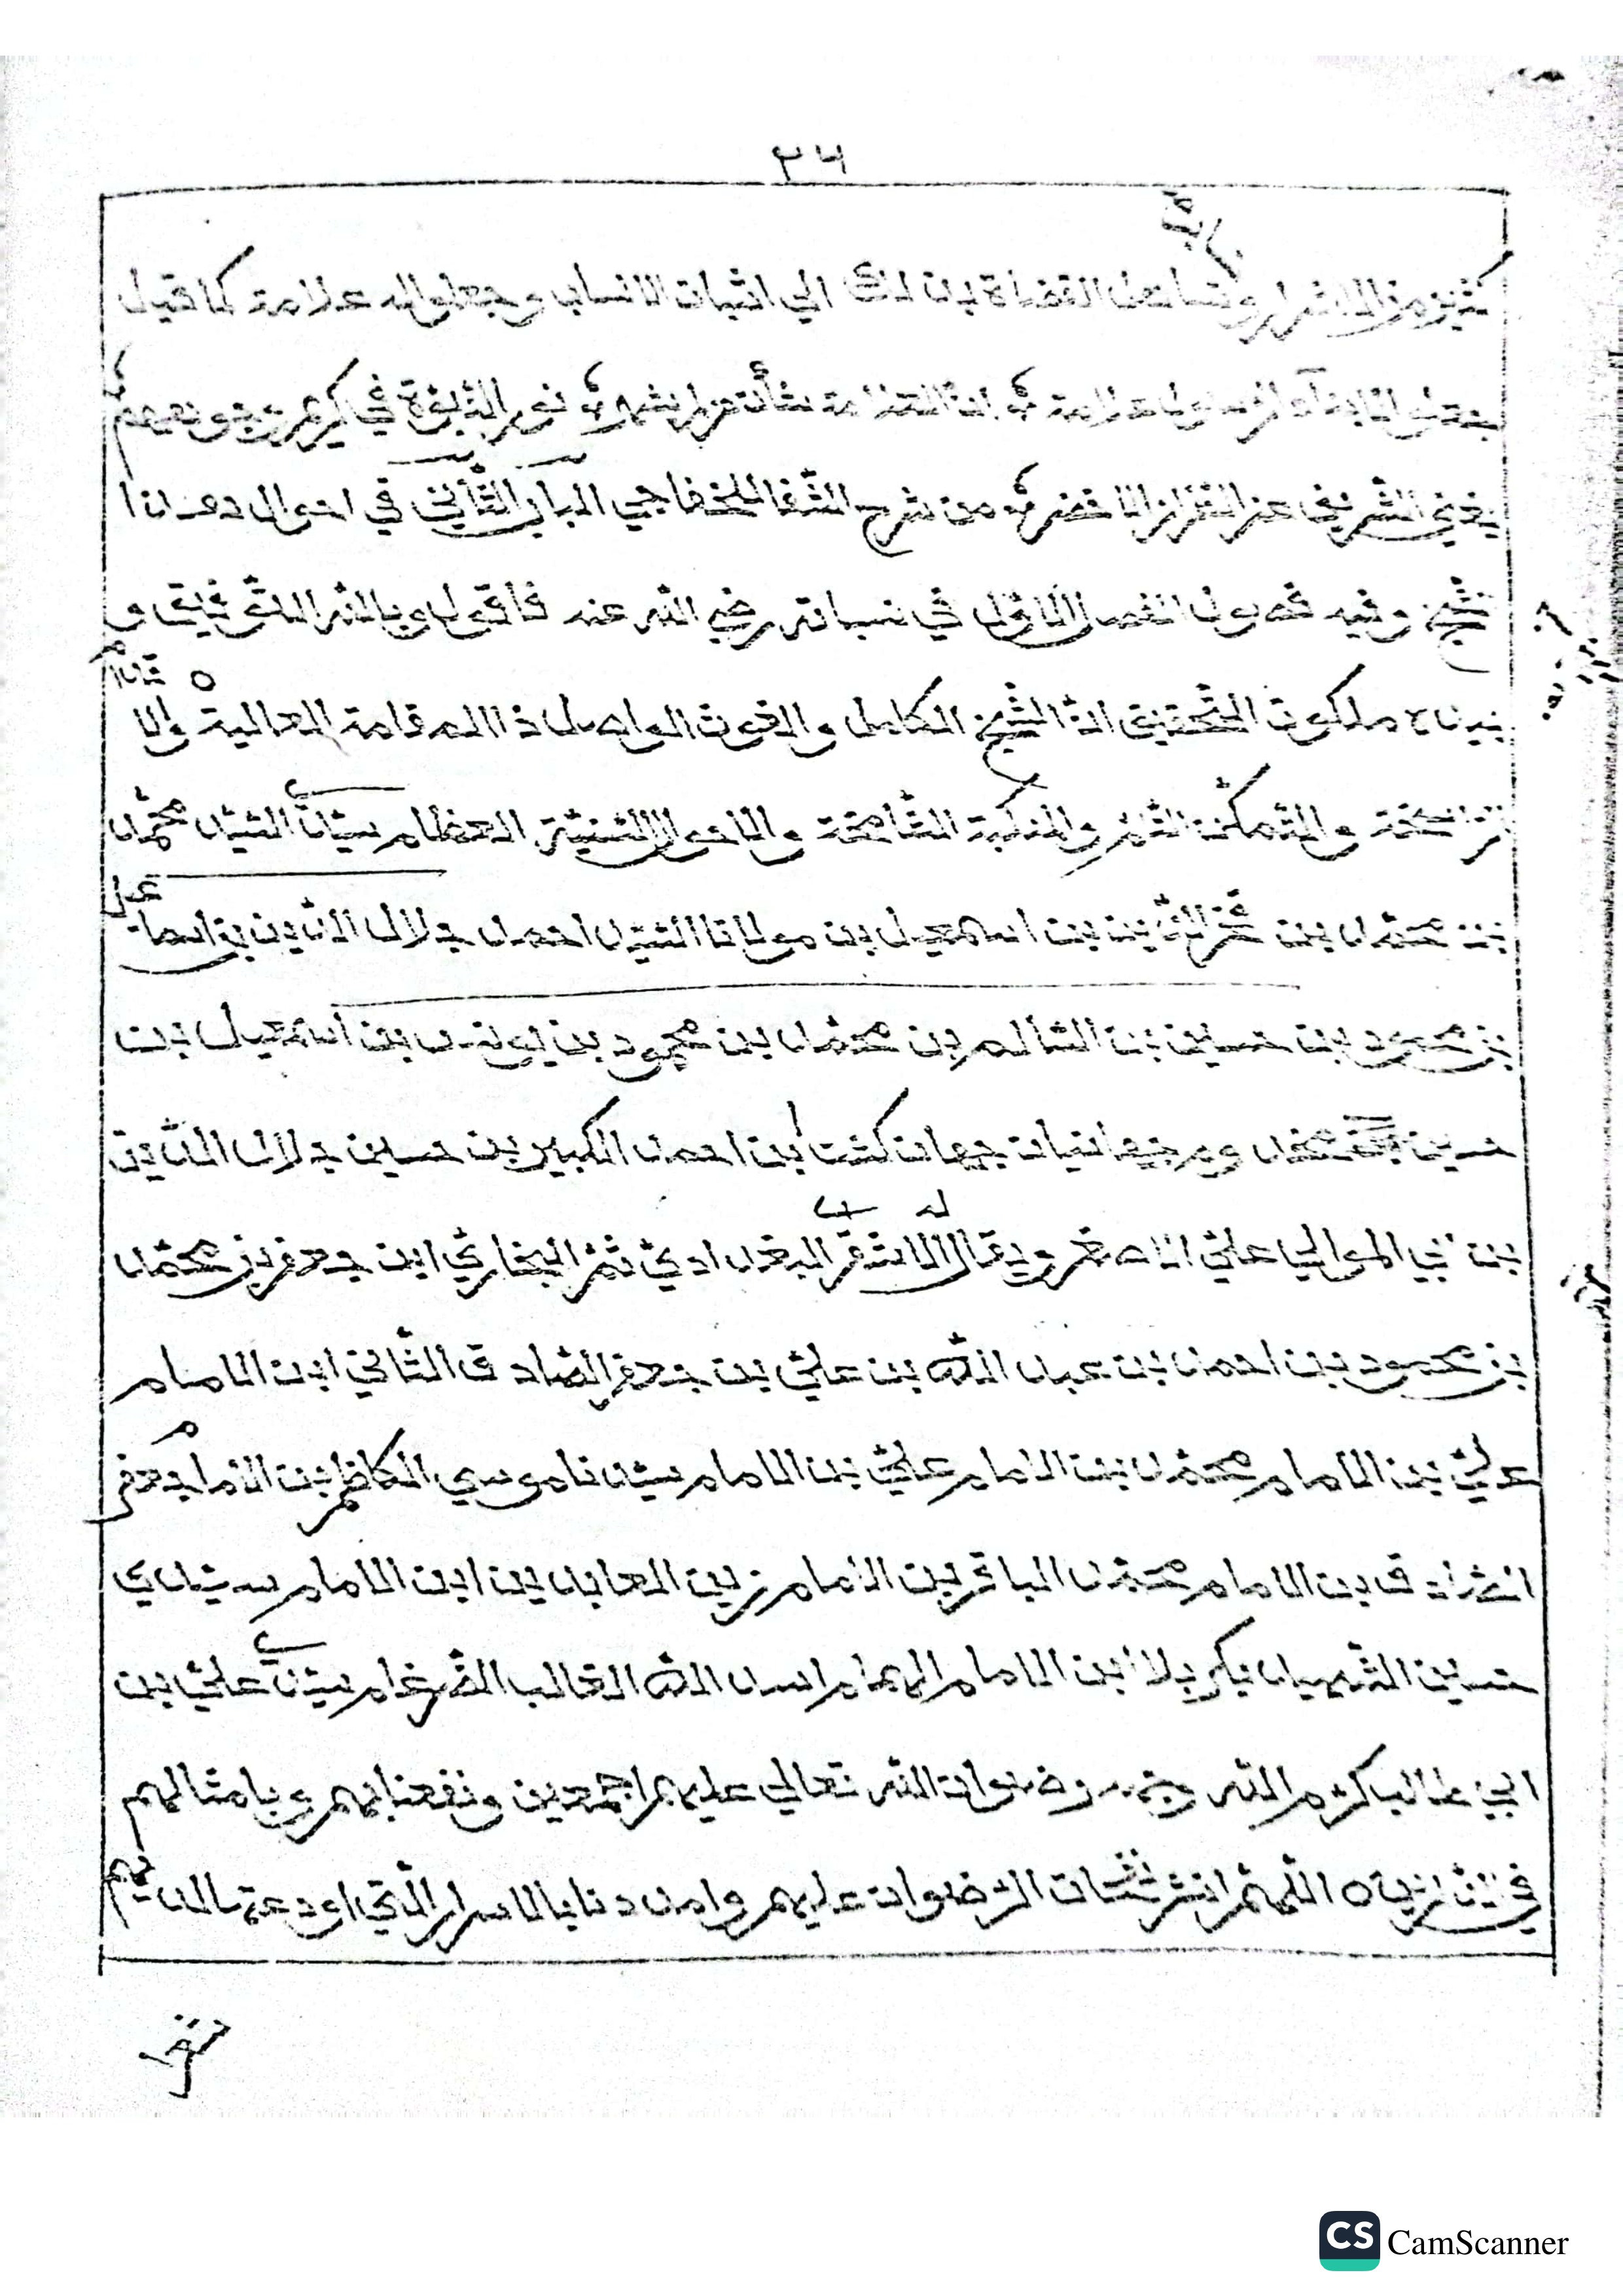 ٢٤
كثير من الاشراف القضاة بذلك الي اثبات الانساب وجعلوا له علامة كما قيل
جعلوا لابناء الرسول علامة ان العلامة شأن من لم يشهر نور النبوة في كريم وجوههم
يغني الشريف عن الطراز الاخضر من شرح الشفا للخفاجي الباب الثاني في احوال هذا
الشيخ وفيه فصول الفصل الاول في نسباته رضي الله عنه فاقول وبالله التوفيق و
ملكوت التحقيق ان الشيخ الكامل والغوث الواصل ذا المقامة العالية والا
الراسخة والمنكبة الشامخة والاحوال السنية العظام سيدنا السيد محمد
بن محمد بن فخر الدين بن اسمعيل بن مولانا السيد احمد جلال الدين بن اسماعيل
بن محمود بن حسين بن السالم بن محمد بن محمود بن يونس بن اسمعيل بن
حسين جهانيان جهان كشت بن احمد الكبير بن حسين جلال الدين
بن ابي الموالي علي الاصغر ويقال له الاشقر البغدادي ثم البخاري ابن جعفر بن محمد
بن محمود بن احمد بن عبد الله بن علي بن جعفر الصادق الثاني ابن الامام
علي بن الامام محمد بن الامام علي بن الامام سيدنا موسي الكاظم بن الامام جعفر
الصادق بن الامام محمد الباقر بن الامام زين العابدين ابن الامام سيدي
حسين الشهيد بكربلا ابن الامام الهمام اسد الله الغالب الضرغام سيدنا علي بن
ابي طالب كرم الله وجهه ورضوان الله تعالي عليهم اجمعين ونفعنا بهم وبامثالهم
في الدارين ٥ اللهم انشر نفحات الرضوان عليهم وامددنا بالاسرار التي اودعتها لديهم
CS CamScanner